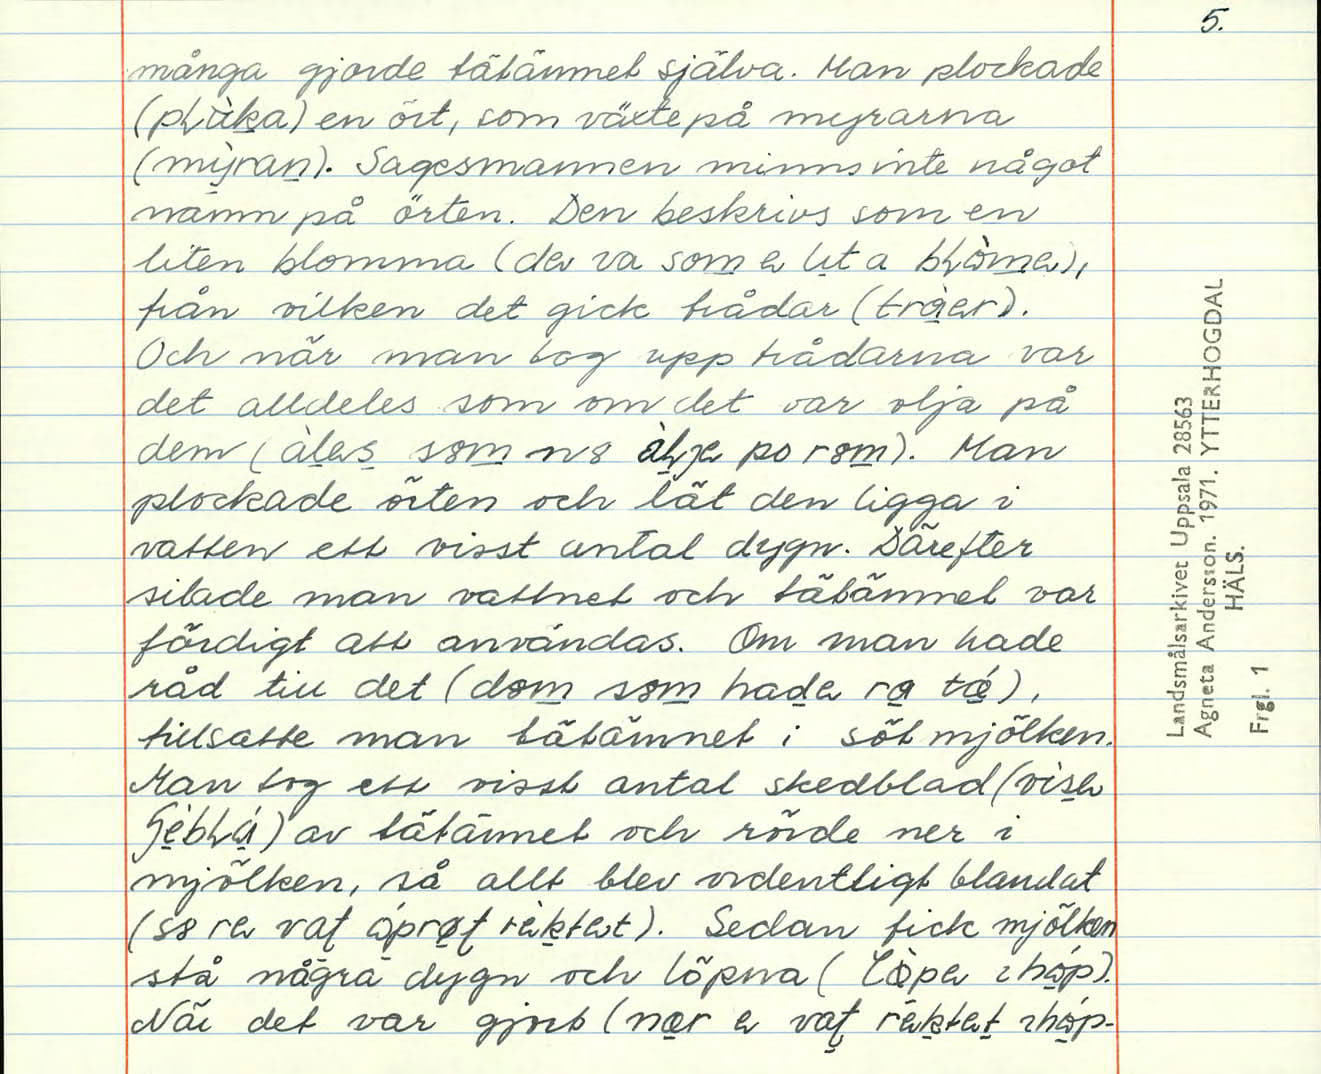 5.
många gjorde tätämnet själva. Man plockade
(pɽùka) en ört, som växte på myrarna
(mỳran). Sagesmannen minns inte något
namn på örten. Den beskrivs som en
liten blomma (də va som ə lita bɽòmə),
från vilken det gick trådar (tràər).
Och när man tog upp trådarna var
det alldeles som om det var olja på
dem (àləs som nə po rom). Man
plockade örten och lät den ligga i
vatten ett visst antal dygn. Därefter
silade man vattnet och tätämnet var
färdigt att användas. Om man hade
råd till det (dom som hadə ra tǽ),
tillsatte man tätämnet i söt mjölken.
Man tog ett visst antal skedblad (visə
) av tätämnet och rörde ner i
mjölken, så allt blev ordentligt blandat
(so rə vaʈ rèktət). Sedan fick mjölken
stå några dygn och löpna (lø̀pə ihóp).
När det var gjort (nær ə vaʈ rèktət ihóp-
Landsmålsarkivet Uppsala 28563
Agneta Andersson. 1971. YTTERHOGDAL
HÄLS.
Frgl. 1